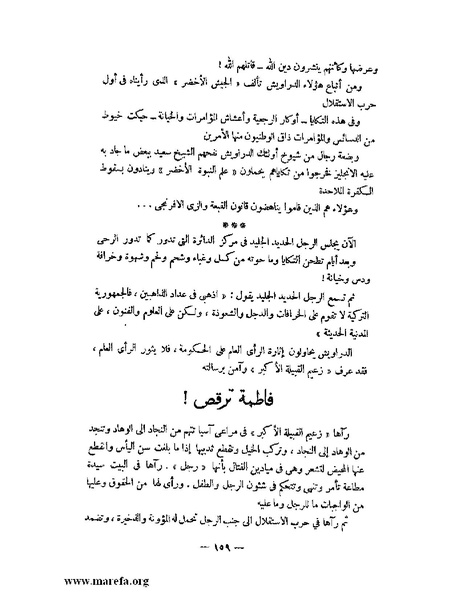 وعرضها وكأنهم ينشرون دين الله ــ قاتلهم الله !
ومن أتباع هؤلاء الدراويش تألف « الجيش الأخضر » الذى رأيناه فى أول
حرب الاستقلال
وفى هذه التكايا ــ أوكار الرجعية وأعشاش المؤامرات والخيانة ــ حيكت خيوط
من الدسائس والمؤامرات ذاق الوطنيون منها الأمرين
وبضعة رجال من شيوخ أولئك الدراويش نفحهم الشيخ سعيد ببعض ما جاد به
عليه الانجليز فخرجوا من تكاياهم يحملون « علم النبوة الأخضر » وينادون بسقوط
الكفرة الملاحدة
وهؤلاء هم الذين قاموا يناهضون قانون القبعة والزى الافرنجى ...
***
الآن يجلس الرجل الحديد الجليد فى مركز الدائرة التى تدور كما تدور الرحى
وبعد أيام تطحن التكايا وما حوته من كسل وغباء وشحم ولحم وشهوة وخرافة
ودس وخيانة !
ثم تسمع الرجل الحديد الجليد يقول : « اذهبى فى عداد الذاهبين ، فالجمهورية
التركية لا تقوم على الخرافات والدجل والشعوذة ، ولكن على العلوم والفنون ، على
المدنية الحديثة »
الدراويش يحاولون إثارة الرأى العام على الحكومة ، فلا يثور الرأى العام ،
فقد عرف « زعيم القبيلة الأكبر » وآمن برسالته
فاطمة ترقص !
رآها « زعيم القبيلة الأكبر » فى مراعى آسيا تتهم من النجاد الى الوهاد وتنجد
من الوهاد إلى النجاد ، وتركب الخيل وتقطع ثدييها إذا ما بلغت سن اليأس وانقطع
عنها المحيض لتشعر وهى فى ميادين القتال بأنها « رجل » . رآها فى البيت سيدة
مطاعة تأمر وتنهى وتتحكم فى شئون الرجل والطفل . ورأى لها من الحقوق وعليها
من الواجبات ما للرجل وما عليه
ثم رآها في حرب الاستقلال الى جنب الرجل تحمل له المؤونة والذخيرة ، وتضمد
ــ ١٥٩ ــ
www.marefa.org